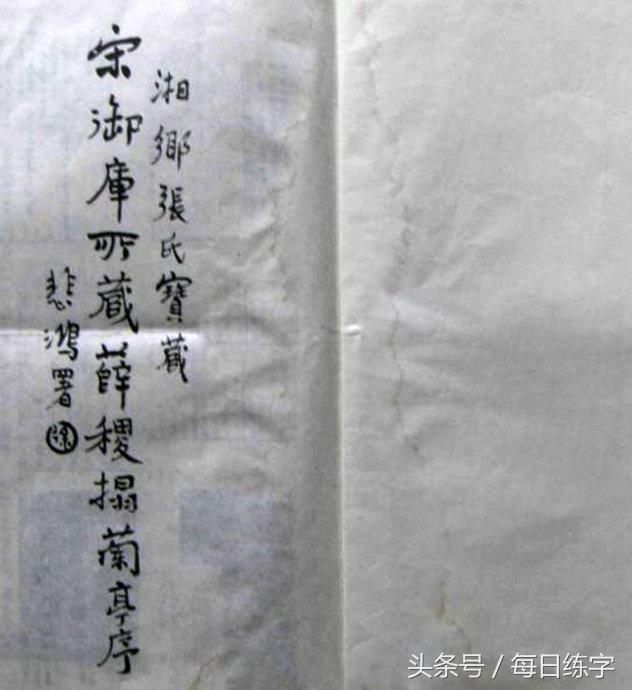 湘鄉張氏寶藏
宋御庫所藏薛稷搨蘭亭序
悲鴻署
頭条号 / 每日练字